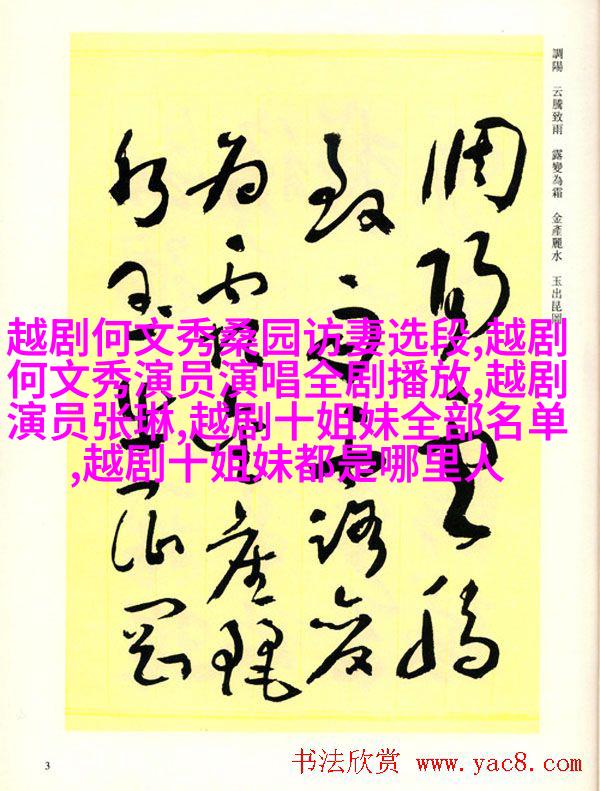 調陽 云騰致雨 露變為霜 金產麗水 玉出昆岡
調陽雲騰
致雨露變
為霜金產麗
水玉出崑岡
越剧何文秀桑园访妻选段,越剧
何文秀演员演唱全剧播放,越剧
演员张琳,越剧十姐妹全部名单
,越剧十姐妹都是哪里人
3
书法欣赏 www.yac8.com